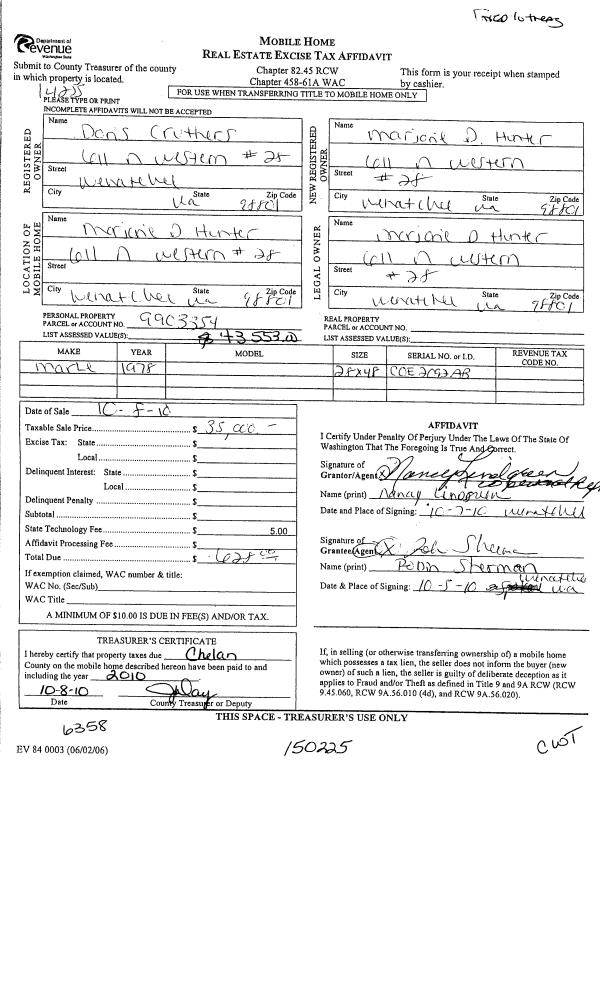 Department of
Revenue
Washington State
MOBILE HOME
REAL ESTATE EXCISE TAX AFFIDAVIT
Submit to County Treasurer of the county
in which property is located.
Chapter 82.45 RCW
Chapter 458-61A WAC
This form is your receipt when stamped
by cashier.
PLEASE TYPE OR PRINT
FOR USE WHEN TRANSFERRING TITLE TO MOBILE HOME ONLY
INCOMPLETE AFFIDAVITS WILL NOT BE ACCEPTED
REGISTERED OWNER
Name Doris Cruthers
611 N Western #28
Street Wenatchee
City State Wa Zip Code 98801
NEW REGISTERED OWNER
Name Marjorie D. Hunter
611 N Western
Street #28
City Wenatchee State Wa Zip Code 98801
LOCATION OF MOBILE HOME
Name Marjorie D Hunter
611 N Western #28
Street
City Wenatchee State Wa Zip Code 98801
LEGAL OWNER
Name Marjorie D Hunter
611 N Western
Street #28
City Wenatchee State Wa Zip Code 98801
PERSONAL PROPERTY
PARCEL or ACCOUNT NO. 9903354
LIST ASSESSED VALUE(S): $ 43553.00
REAL PROPERTY
PARCEL or ACCOUNT NO.
LIST ASSESSED VALUE(S):
MAKE YEAR MODEL SIZE SERIAL NO. or I.D. REVENUE TAX CODE NO.
1978 28x48
Date of Sale 10-8-10
Taxable Sale Price $ 35,000 -
Excise Tax: State $
Local $
Delinquent Interest: State $
Local $
Delinquent Penalty $
Subtotal $
State Technology Fee $ 5.00
Affidavit Processing Fee $
Total Due $ 628.00
If exemption claimed, WAC number & title:
WAC No. (Sec/Sub)
WAC Title
A MINIMUM OF $10.00 IS DUE IN FEE(S) AND/OR TAX.
AFFIDAVIT
I Certify Under Penalty Of Perjury Under The Laws Of The State Of
Washington That The Foregoing Is True And Correct.
Signature of
Grantor/Agent X Nancy Lindgreen
Name (print) Nancy Lindgreen
Date and Place of Signing: 10-7-10 Wenatchee
Signature of
Grantee/Agent X Rob Sherman
Name (print) Robin Sherman
Date & Place of Signing: 10-5-10 Wenatchee wa
TREASURER'S CERTIFICATE
I hereby certify that property taxes due Chelan
County on the mobile home described hereon have been paid to and
including the year 2010
10-8-10
Date County Treasurer or Deputy
If, in selling (or otherwise transferring ownership of) a mobile home
which possesses a tax lien, the seller does not inform the buyer (new
owner) of such a lien, the seller is guilty of deliberate deception as it
applies to Fraud and/or Theft as defined in Title 9 and 9A RCW (RCW
9.45.060, RCW 9A.56.010 (4d), and RCW 9A.56.020).
THIS SPACE - TREASURER'S USE ONLY
6358
EV 84 0003 (06/02/06)
150225
CWT